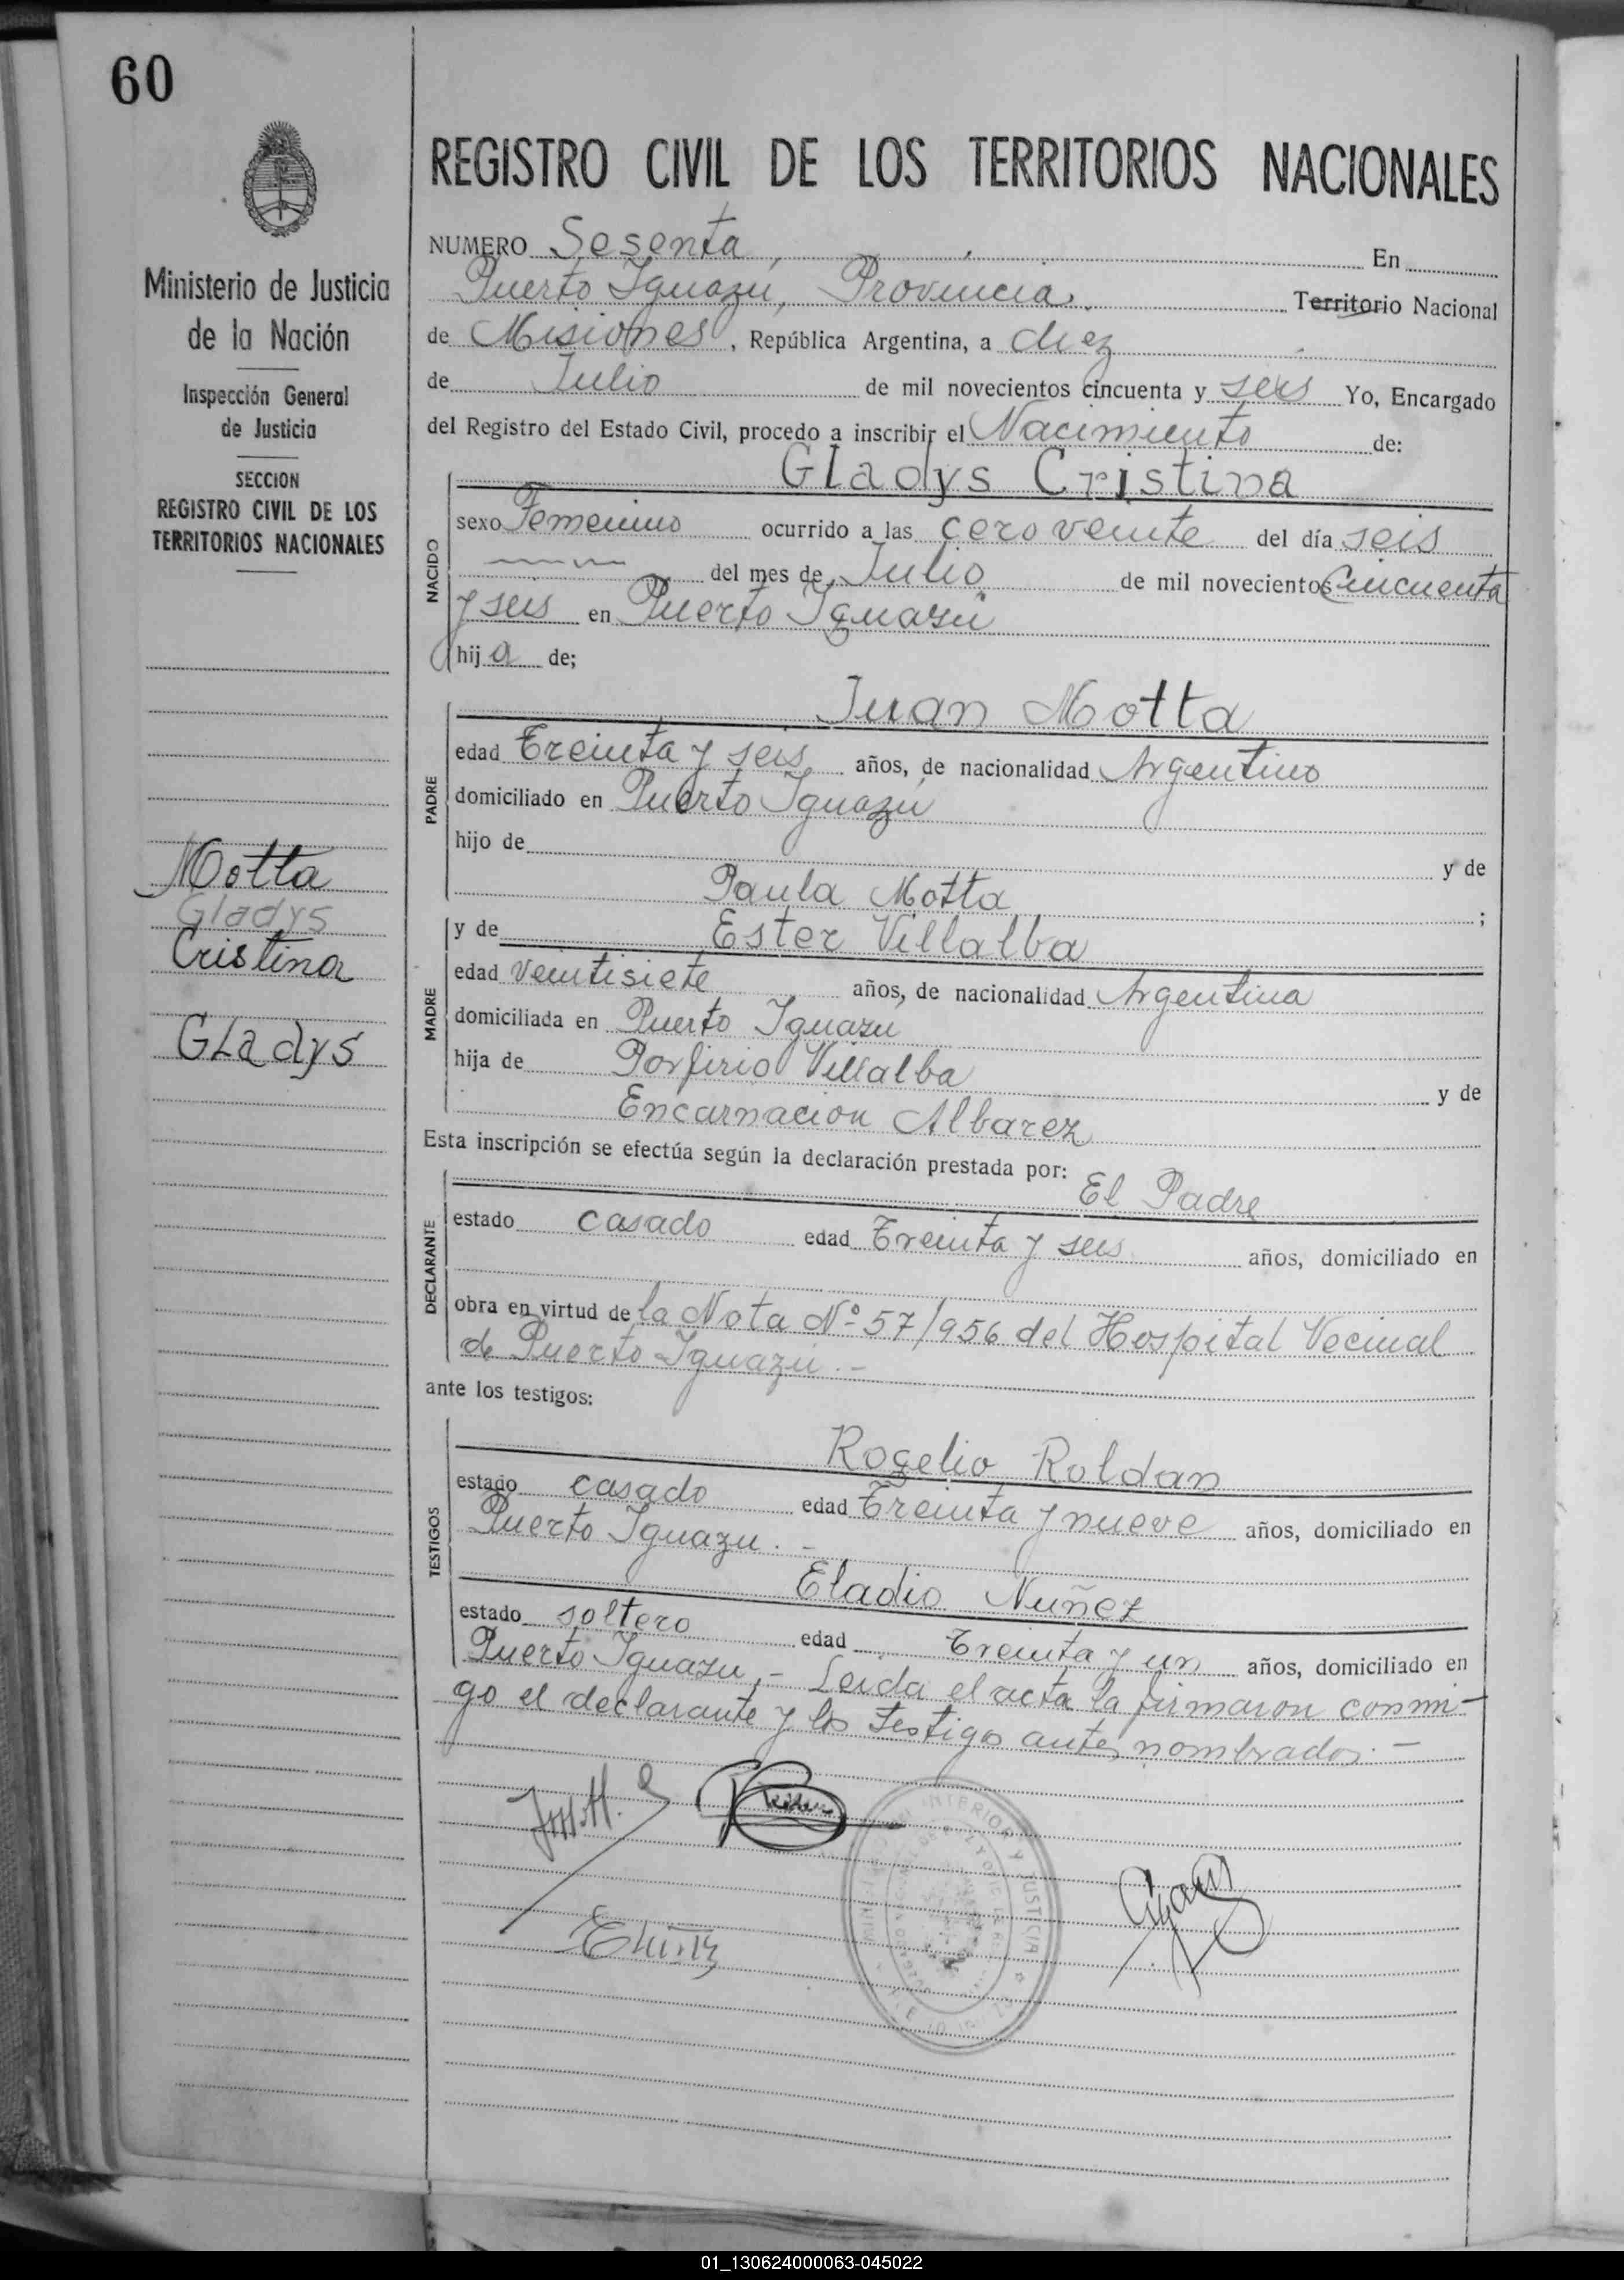 60
Ministerio de Justicia
de la Nación
Inspección General
de Justicia
SECCION
REGISTRO CIVIL DE LOS
TERRITORIOS NACIONALES
Motta
Gladys
Cristina
Gladys
REGISTRO CIVIL DE LOS TERRITORIOS NACIONALES
NUMERO Sesenta, En
Puerto Iguazú, Provincia. Territorio Nacional
de Misiones, República Argentina, a diez
de Julio de mil novecientos cincuenta y seis Yo, Encargado
del Registro del Estado Civil, procedo a inscribir el Nacimiento de:
Gladys Cristina
NACIDO
sexo Femenino ocurrido a las cero veinte del día seis
del mes de Julio de mil novecientos Cincuenta
y seis en Puerto Iguazú
hija de;
Juan Motta
PADRE
edad Treinta y seis años, de nacionalidad Argentino
domiciliado en Puerto Iguazú
hijo de y de
Paula Motta ;
y de Ester Villalba
MADRE
edad veintisiete años, de nacionalidad Argentina
domiciliada en Puerto Iguazu
hija de Porfirio Villalba y de
Encarnacion Albarez
Esta inscripción se efectúa según la declaración prestada por:
El Padre
DECLARANTE
estado casado edad Treinta y seis años, domiciliado en
obra en virtud de la Nota Nº 57/956 del Hospital Vecinal
de Puerto Iguazú.-
ante los testigos:
Rogelio Roldan
TESTIGOS
estado casado edad Treinta y nueve años, domiciliado en
Puerto Iguazu. -
Eladio Nuñez
estado soltero edad Treinta y un años, domiciliado en
Puerto Iguazu,- Leida el acta la firmaron conmi-
go el declarante y los testigos antes nombrados. -
INTERIOR Y JUSTICIA
01_130624000063-045022